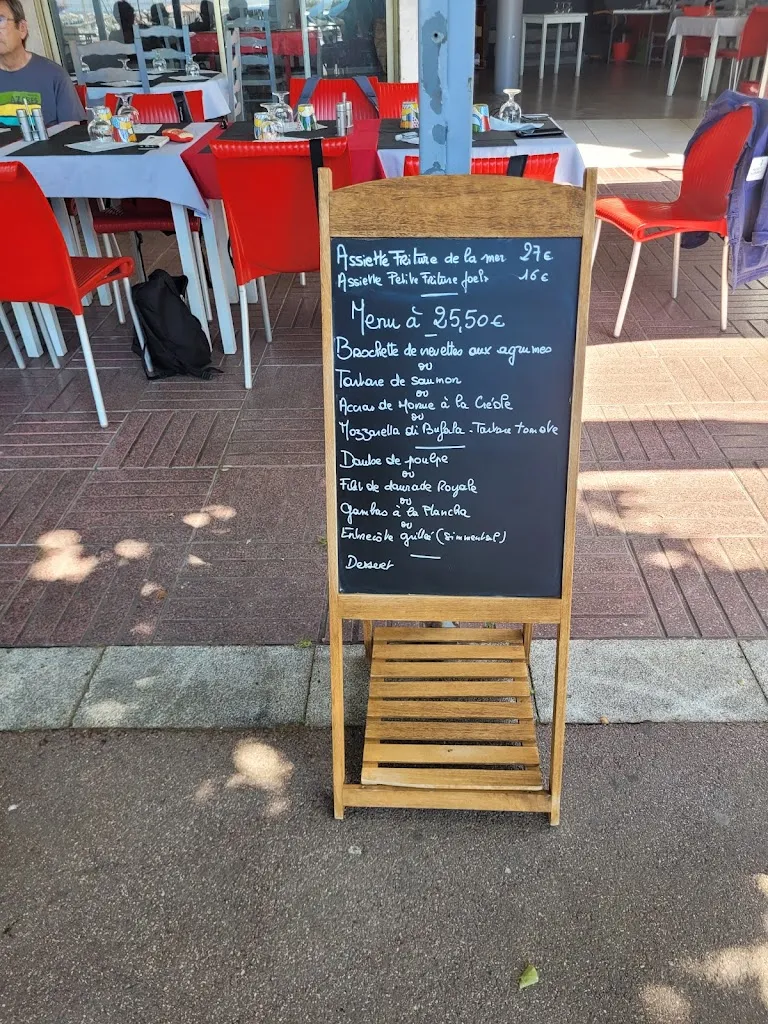 Assiette Friture de la mer 27€
Assiette Petite Friture 16€
Menu à 25,50€
Brochette de crevettes aux agrumes
ou
Tartare de saumon
ou
Accras de Morue à la Créole
ou
Mozzarella di Bufala - Tartare tomate
Daube de poulpe
ou
Filet de daurade Royale
ou
Gambas à la Plancha
ou
Entrecôte grillée (Simmental)
Dessert